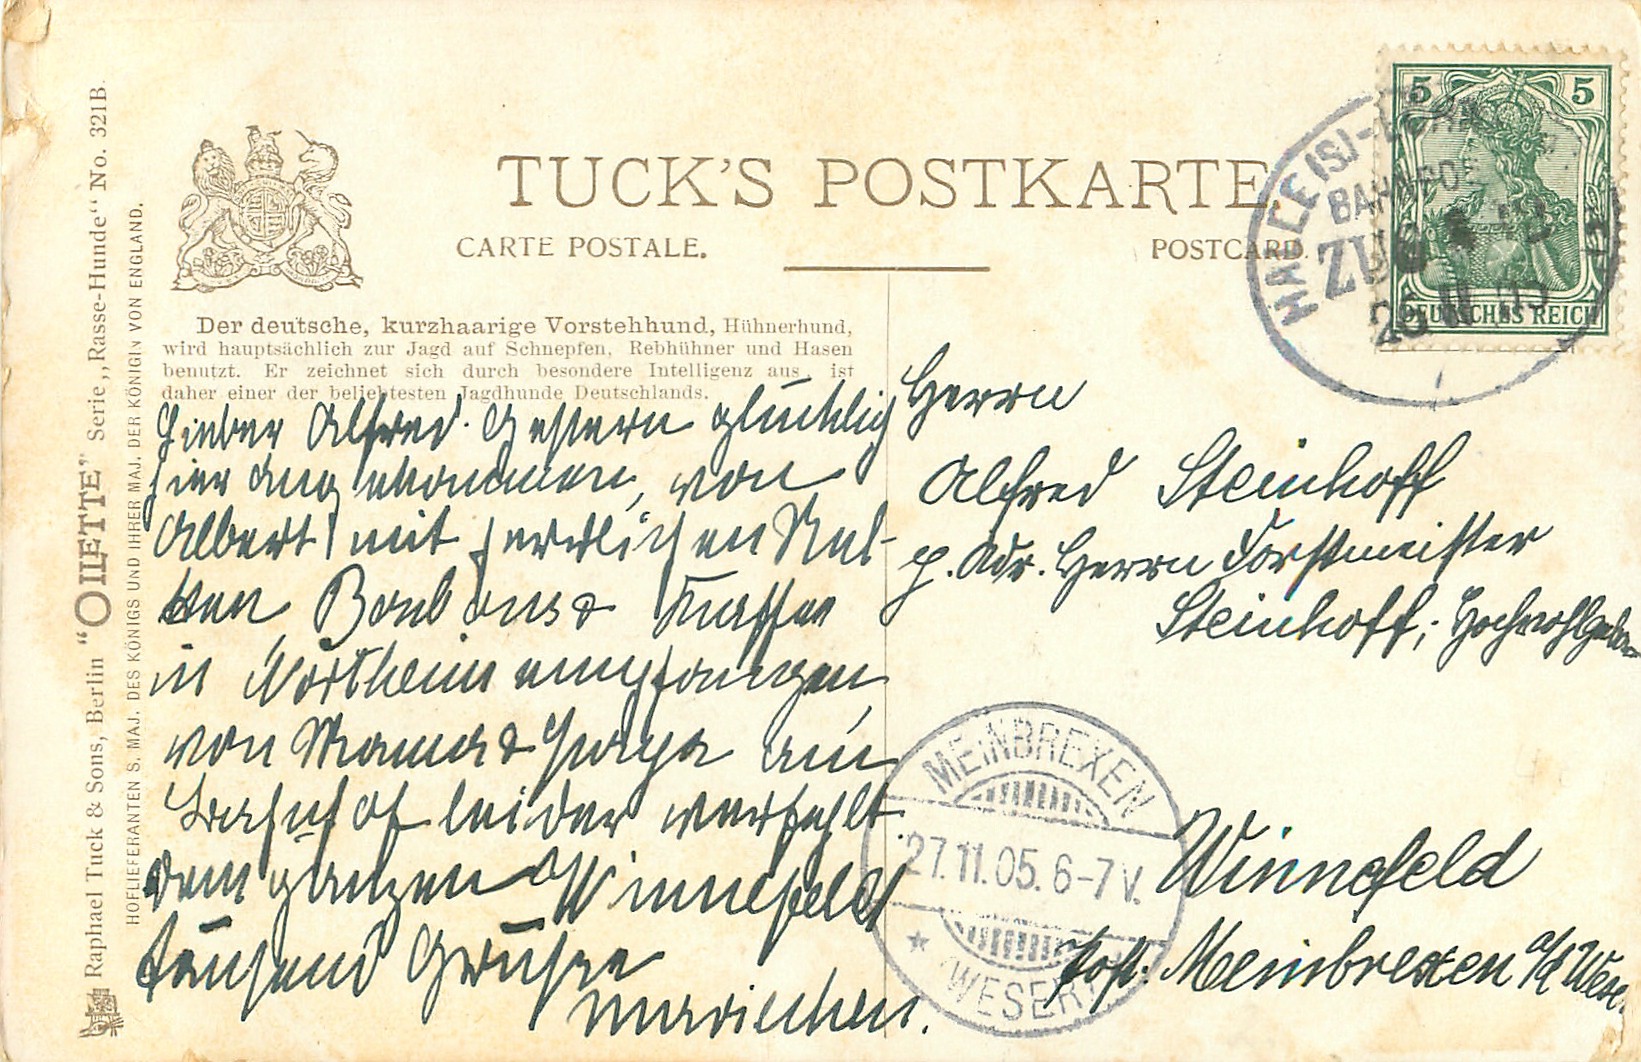 TUCK'S POSTKARTE.
CARTE POSTALE.
POSTCARD.
Raphael Tuck & Sons, Berlin "OILETTE" Serie „Rasse-Hunde“ No. 321B.
HOFLIEFERANTEN S. MAJ. DES KÖNIGS UND IHRER MAJ. DER KÖNIGIN VON ENGLAND.
Der deutsche, kurzhaarige Vorstehhund, Hühnerhund,
wird hauptsächlich zur Jagd auf Schnepfen, Rebhühner und Hasen
benutzt. Er zeichnet sich durch besondere Intelligenz aus, ist
daher einer der beliebtesten Jagdhunde Deutschlands.
Lieber Alfred. Gestern glücklich
hier angekommen, von
Albert mit herrlichen
Bonbons & Kaffee
in Northeim empfangen,
von Mama & Papa am
Bahnhof leider verfehlt.
Dem ganzen Winnefeld
tausend Grüße
Mariechen.
Herrn
Alfred Steinhoff
p. Adr. Herrn Forstmeister
Steinhoff, Hochwohlgeb.
Winnefeld
Post. Meinbrexen a/d Weser
5 5
DEUTSCHES REICH
HALLE (S.)-
BAHNPOST
ZUG
26 11 05
MEINBREXEN
27.11.05. 6-7V.
(WESER)